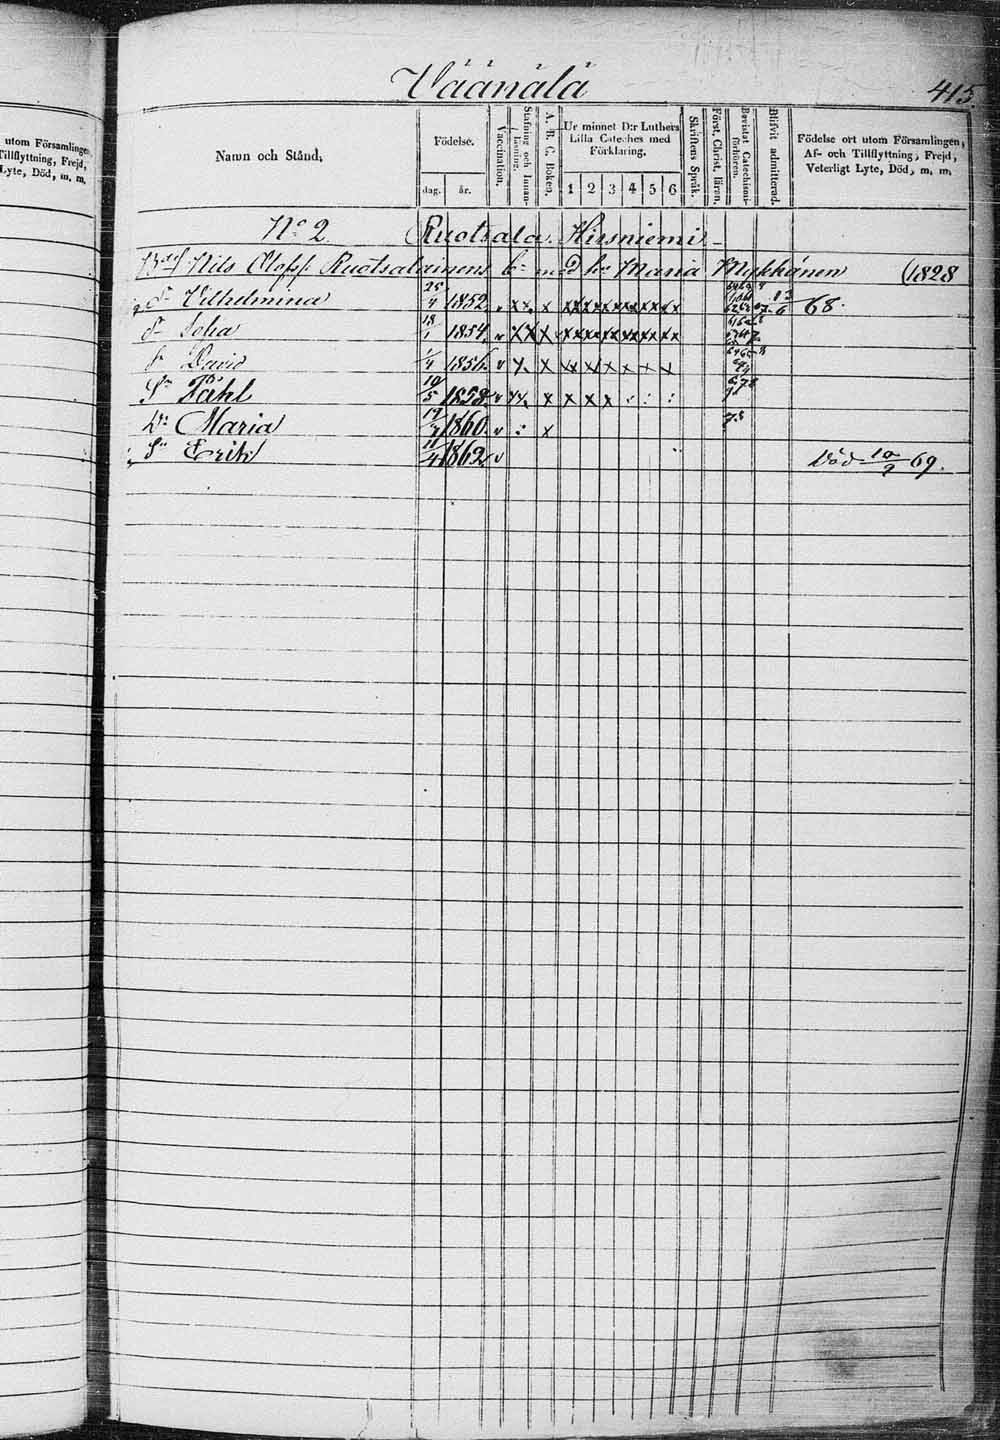 Väänälä
415
utom Församlingen,
Tillflyttning, Frejd,
Lyte, Död, m. m.
Namn och Stånd,
Födelse.
dag. år.
Vaccination.
Stafning och Innan-
läsning.
A. B. C. Boken.
Ur minnet D:r Luthers
Lilla Cateches med
Förklaring.
1 2 3 4 5 6
Skriftens Språk.
Först, Christ, läran.
Bevistat Catechismi-
förhören.
Blifvit admitterad.
Födelse ort utom Församlingen,
Af- och Tillflyttning, Frejd,
Veterligt Lyte, Död, m. m.
No 2. Ruotsala. Hirsniemi
Nils Olofss: Ruotsalainens med Maria Mykkänen (1828
Vilhelmina 25/4 1852 x x x x x x x x x 68.
Sofia 18/1 1854 v x x x x x x x x x
David 1/4 1856 v x x x x x x x x
Sn Påhl 19/5 1858 v x x x x x : : :
Dr Maria 1860 v : x 73
Sn Erik 11/4 1862 v Död 10/9 69.